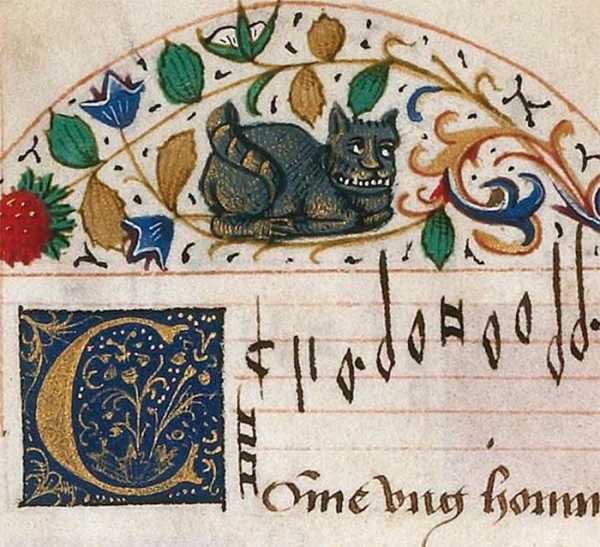 C
Õme vng homm